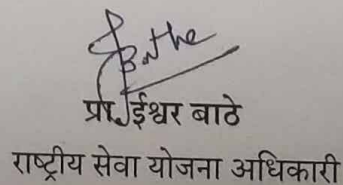 प्रा. ईश्वर बाठे
राष्ट्रीय सेवा योजना अधिकारी